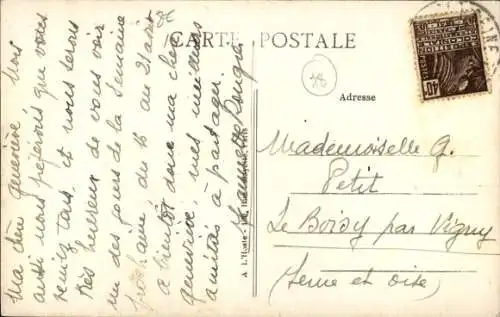 CARTE POSTALE
Ma chère Geneviève Moi
aussi nous préférons que vous
veniez tous, et nous serons
très heureux de vous voir
un des jours de la semaine
prochaine, du 15 au 21 août
à bientôt donc ma chère
geneviève, mes meilleures
amitiés à partager.
18
Adresse
Mademoiselle G.
Petit
Le Boisy par Vigny
(Seine et Oise)
POSTES
40c